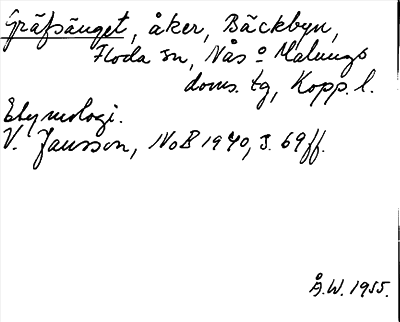 Gräfsänget, åker, Bäckbyn,
Floda sn, Nås o Malungs
doms. tg, Kopp. l.
Etymologi.
V. Jansson, NoB 1940, s. 69ff.
Å.W. 1955.